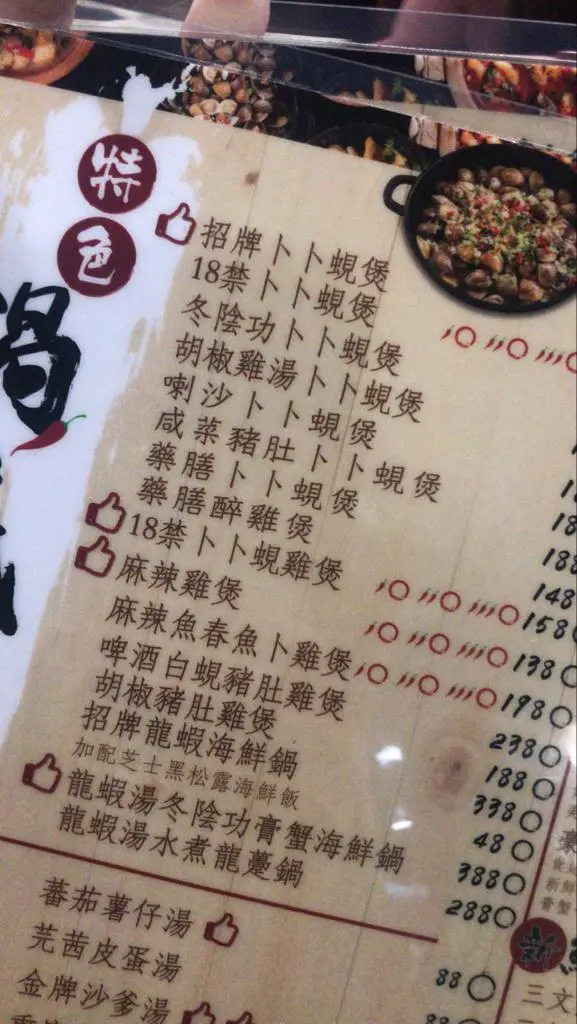 特色
招牌卜卜蜆煲
18禁卜卜蜆煲
冬陰功卜卜蜆煲
胡椒雞湯卜卜蜆煲
喇沙卜卜蜆煲
咸菜豬肚卜卜蜆煲
藥膳卜卜蜆煲
藥膳醉雞煲
18禁卜卜蜆雞煲
麻辣雞煲 158
麻辣魚春魚卜雞煲 138
啤酒白蜆豬肚雞煲 198
胡椒豬肚雞煲 238
招牌龍蝦海鮮鍋 188
加配芝士黑松露海鮮飯 338
龍蝦湯冬陰功膏蟹海鮮鍋 48
龍蝦湯水煮龍躉鍋 388
288
蕃茄薯仔湯 88
芫茜皮蛋湯
金牌沙爹湯
188
148
新
三文